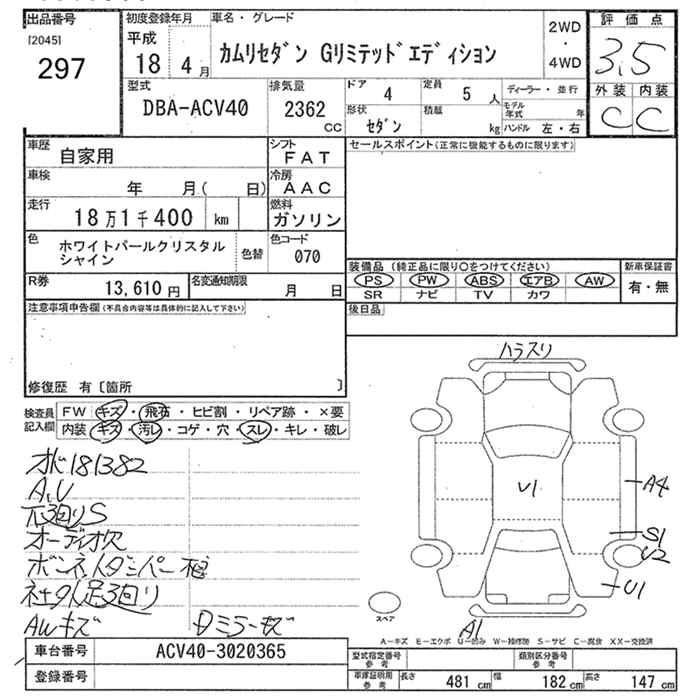 出品番号 初度登録年月 車名・グレード 2WD・4WD 評価点
[2045] 297
平成 18 4月 カムリセダン Gリミテッドエディション 3.5
型式 排気量 ドア 4 定員 5人 ディーラー・並行 外装 内装
DBA-ACV40 2362cc 形状 セダン 積載 kg モデル年式 年 C C
ハンドル 左・右
車歴 自家用 シフト FAT セールスポイント(正常に機能するものに限ります)
車検 年 月( 日) 冷房 AAC
走行 18万1千400 km 燃料 ガソリン
色 ホワイトパールクリスタルシャイン 色替 色コード 070
装備品(純正品に限り○をつけてください) 新車保証書
R券 13,610円 名変通知期限 月 日 PS PW ABS エアB AW 有・無
SR ナビ TV カワ
注意事項申告欄(不具合内容等は具体的に記入して下さい) 後日品
修復歴 有〔箇所 〕
検査員記入欄 FW キズ・飛石・ヒビ割・リペア跡・×要
内装 キズ・汚レ・コゲ・穴・スレ・キレ・破レ
ハラスリ
181382
A,U
V1
A4
S1
オーディオ欠
U2
U1
AWキズ
Dミラーキズ
スペア
A1
A-キズ E-エクボ U-凹み W-補修跡 S-サビ C-腐食 XX-交換済
車台番号 ACV40-3020365 型式指定番号 参考 類別区分番号 参考
登録番号 車庫証明用参考 長さ 481cm 幅 182cm 高さ 147cm